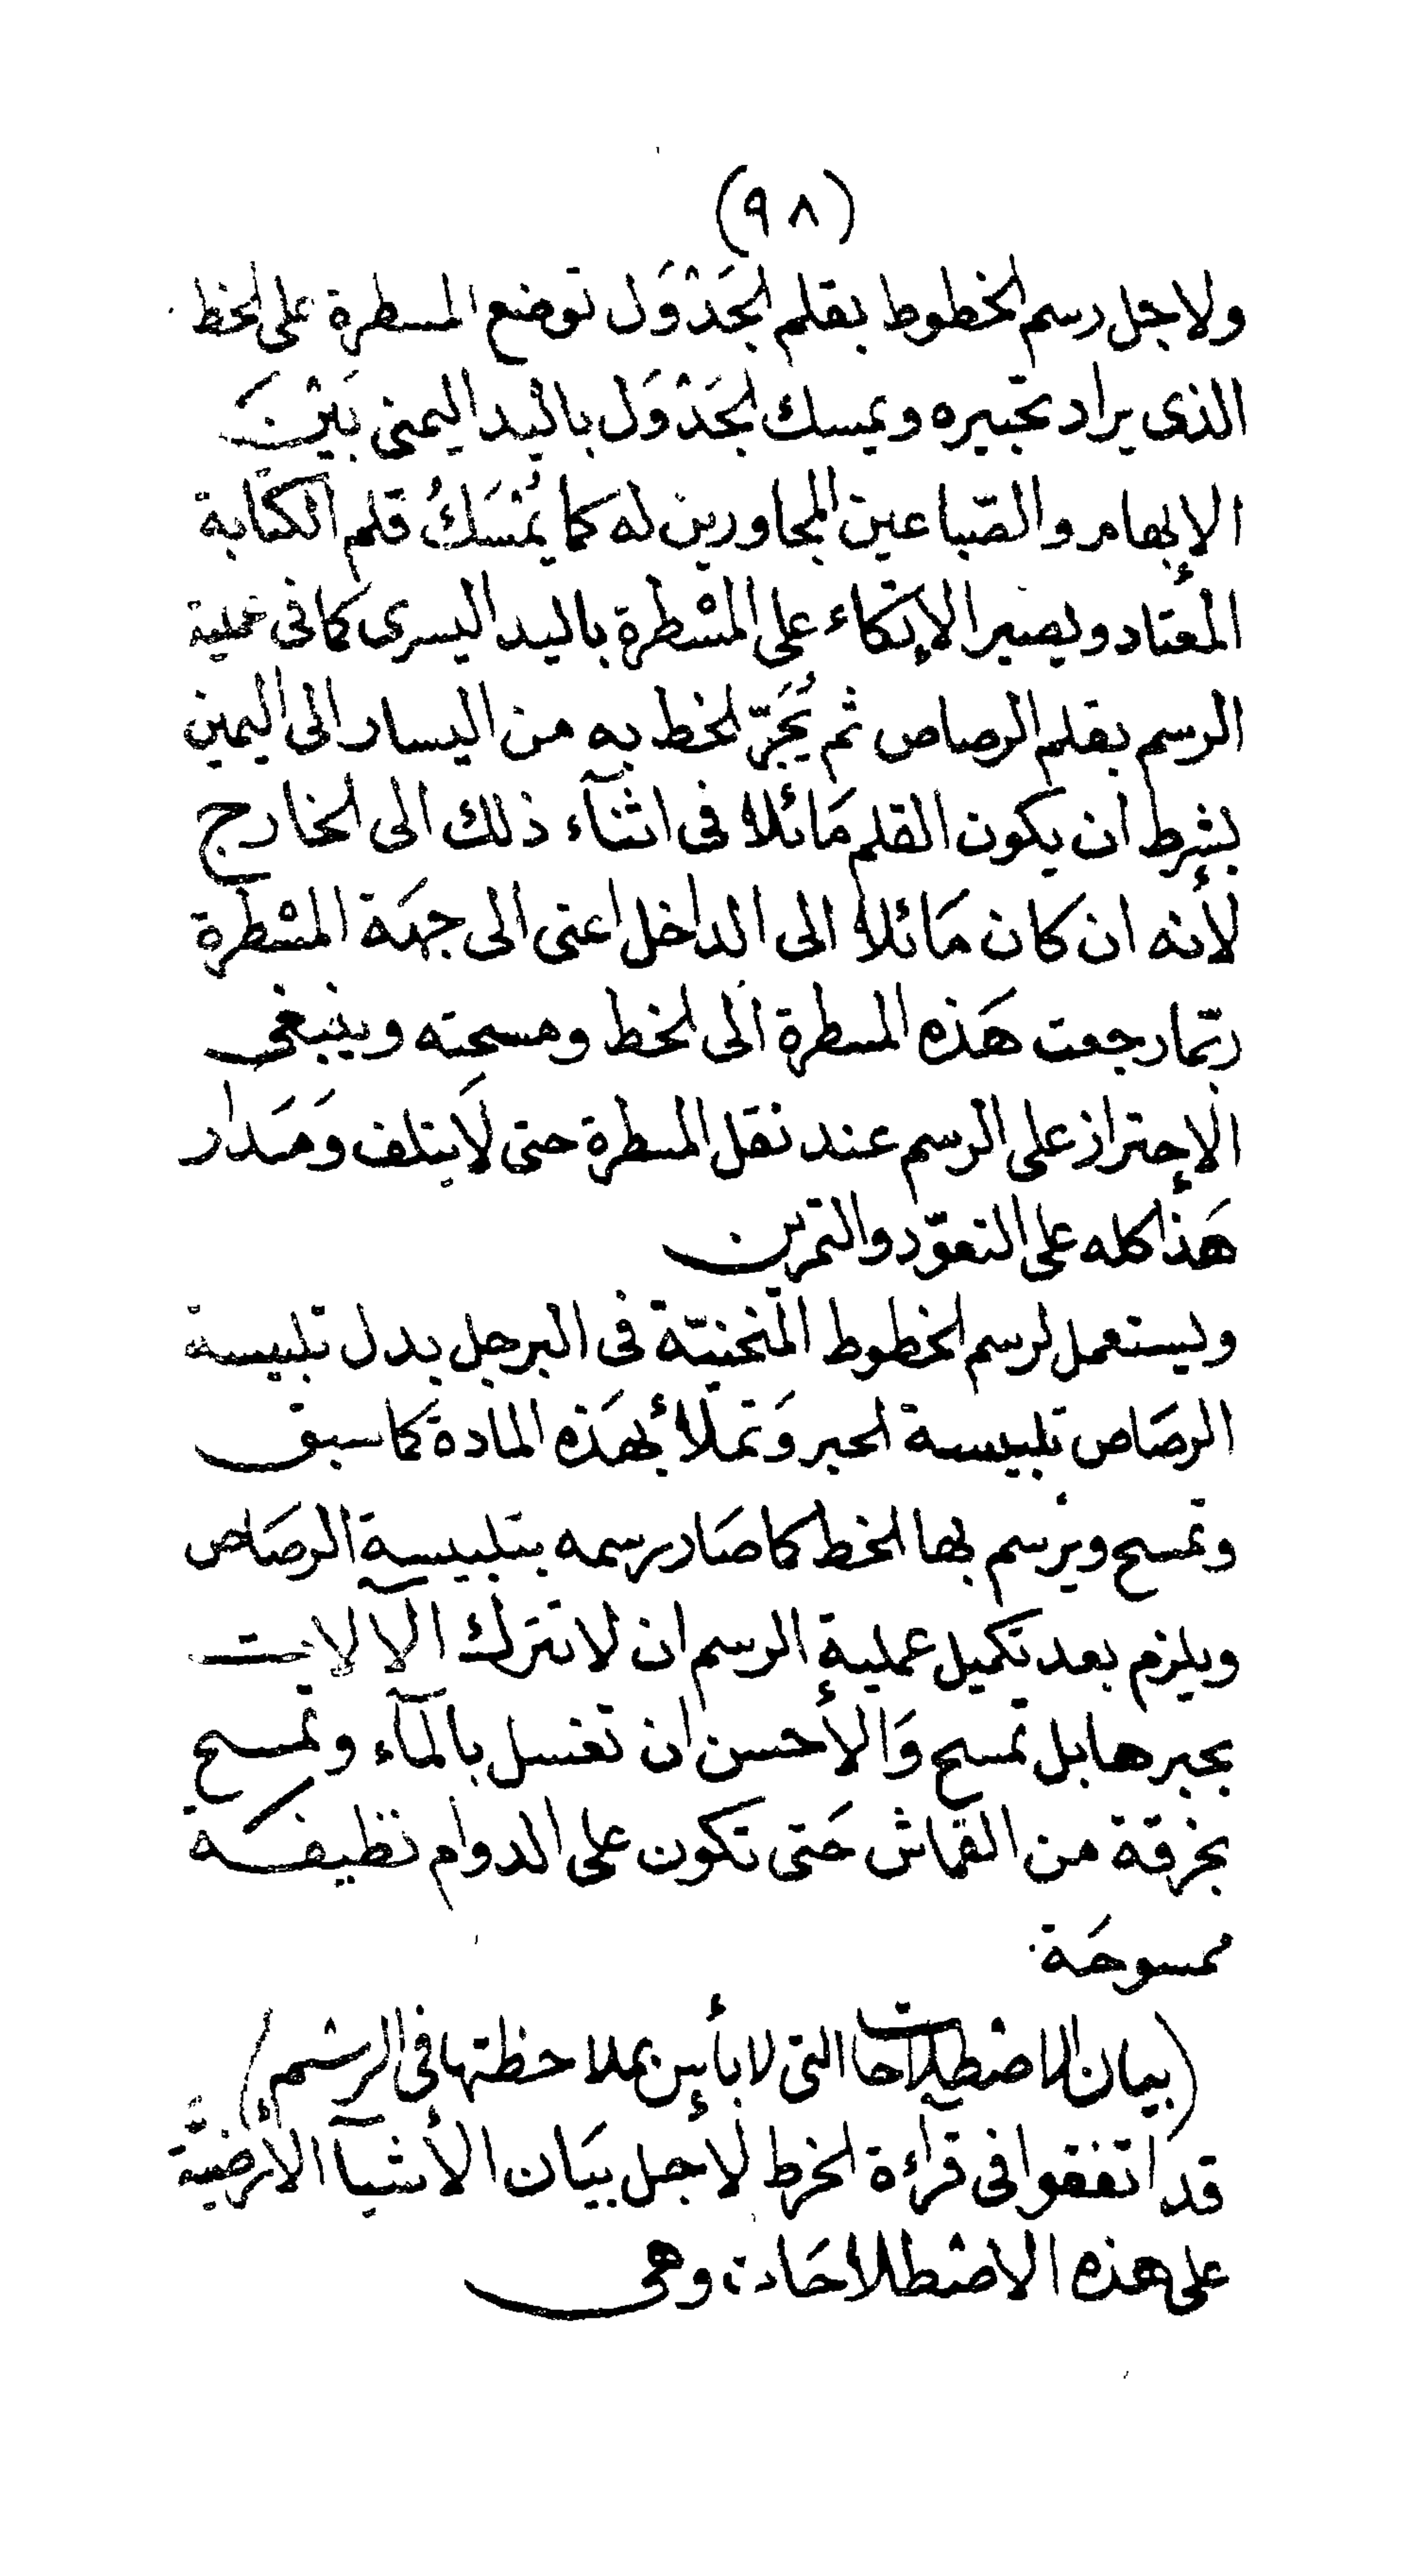 (٩٨)
ولاجل رسم الخطوط بقلم الجَدْوَل توضع المسطرة على الخط
الذى يراد تحبيره ويمسك الجَدْوَل باليد اليمنى بَيْنَ
الإبهام والصّباعين المجاورين له كما يُمْسَكُ قلم الكتابة
المعتاد ويصير الإتكاء على المسْطرة باليد اليسرى كما فى عملية
الرسم بقلم الرصاص ثم يُجَرّ الخط به من اليسار الى اليمين
بشرط ان يكون القلم مَائلا فى اثنآء ذلك الى الخارج
لأنه ان كان مَائلا الى الداخل اعنى الى جهَة المسْطرة
ربّما رجعت هَذه المسطرة الى الخط ومسحته وينبغى
الإحتراز على الرسم عند نقل المسطرة حتى لَا يتلف وَمَدار
هَذا كله على التعوّد والتمرين
ويستعمل لرسم الخطوط المنحنيّة فى البرجل بدل تلبيسة
الرصَاص تلبيسة الحبر وَتملأ بهَذه المادة كما سبق
وتمسح ويرسم بها الخط كما صَار رسمه بتلبيسة الرصَاص
ويلزم بعد تكميل عملية الرسم ان لا تترك الآلات
بحبرها بل تمسح وَالأحسن ان تغسل بالمآء وتمسح
بخرقة من القماش حَتى تكون على الدوام نظيفَة
ممسوحَة
(بيان الاصْطلاحات التى لا بأس بملاحظتها فى الرسْم)
قد اتفقوا فى قرآءة الخرط لأجل بيَان الأشيآ الأرضيَّة
على هذه الاصْطلاحَات وهى